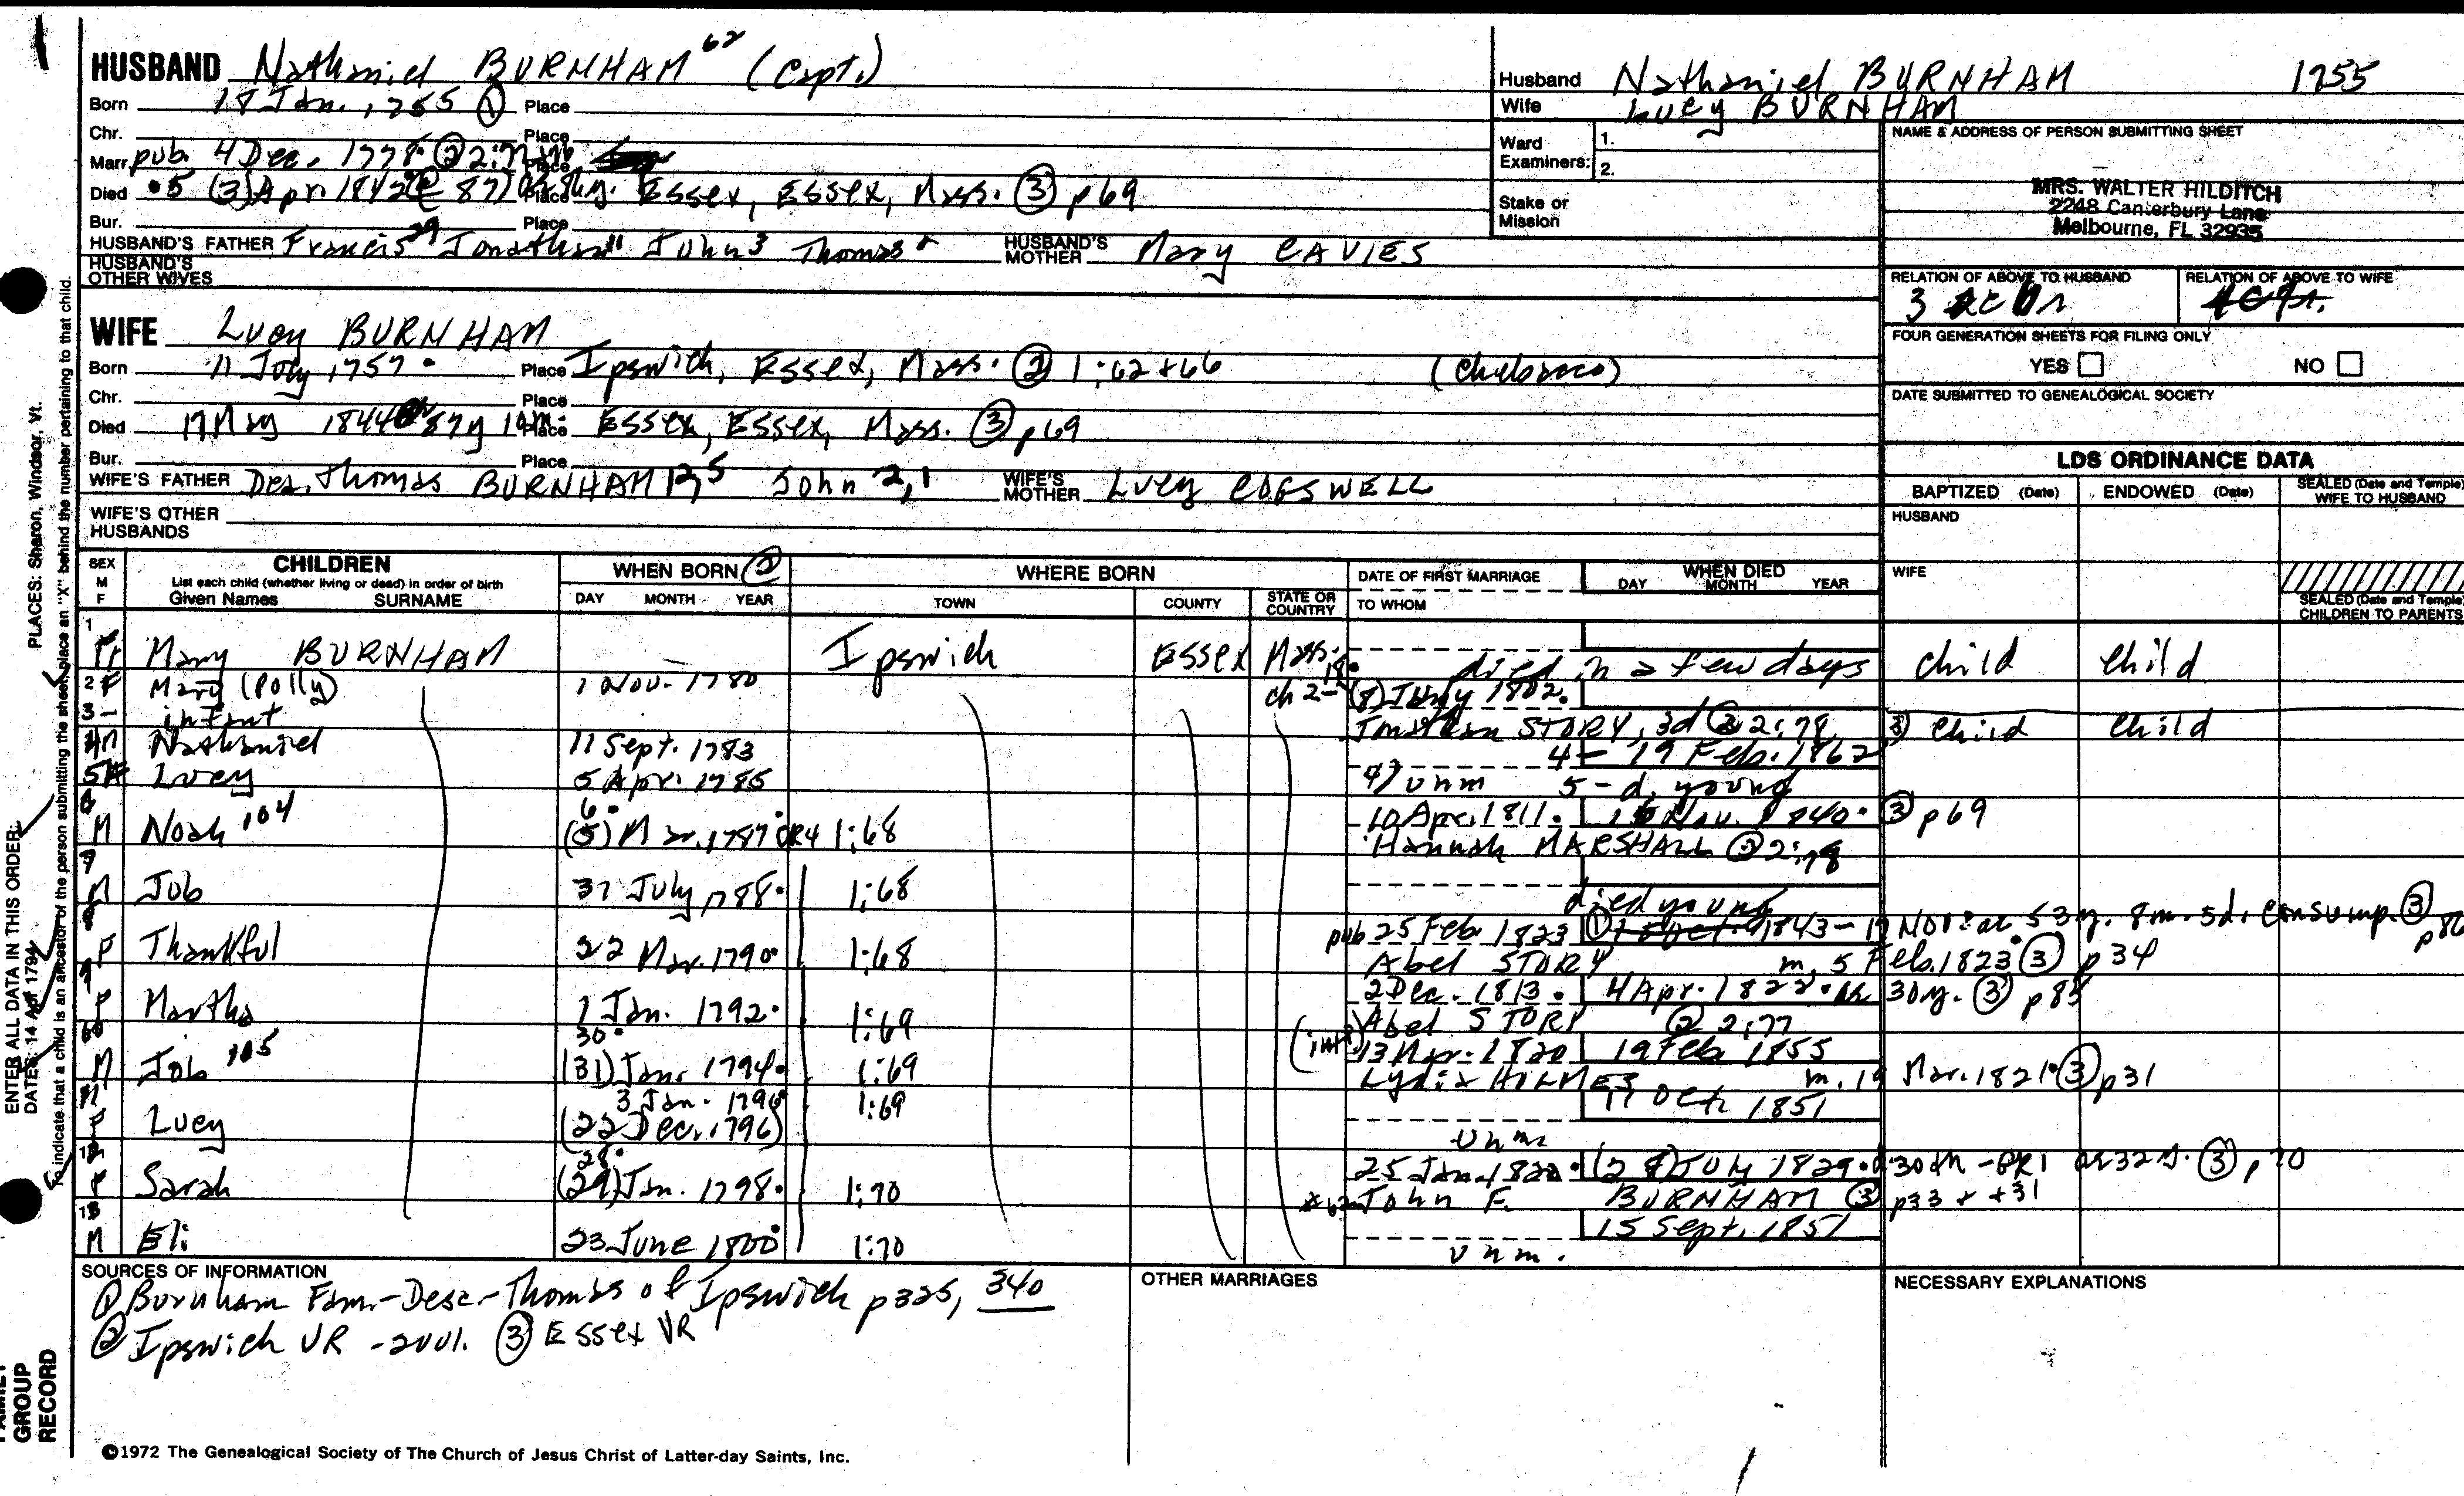 HUSBAND Nathaniel BURNHAM 62 (Capt.)
Born 18 Jan. 1755 ① Place
Chr. Place
Marr. pub. 4 Dec. 1778 ② 2:77 Place
Died 5 (3) Apr. 1842 87 Place Essex, Essex, Mass. ③ p 69
Bur. Place
HUSBAND'S FATHER Francis 29 Jonathan 11 John 3 Thomas
HUSBAND'S MOTHER Mary EAVIES
HUSBAND'S OTHER WIVES
WIFE Lucy BURNHAM
Born 11 July 1757 Place Ipswich, Essex, Mass. ② 1:62+66 (Chebacco)
Chr. Place
Died 17 May 1844 87y 10m. Place Essex, Essex, Mass. ③ p 69
Bur. Place
WIFE'S FATHER Dea. Thomas BURNHAM 12, 5 John 2, 1
WIFE'S MOTHER Lucy COGSWELL
WIFE'S OTHER HUSBANDS
Husband Nathaniel BURNHAM 1755
Wife Lucy BURNHAM
Ward Examiners: 1. 2.
Stake or Mission
NAME & ADDRESS OF PERSON SUBMITTING SHEET
MRS. WALTER HILDITCH
2248 Canterbury Lane
Melbourne, FL 32935
RELATION OF ABOVE TO HUSBAND
RELATION OF ABOVE TO WIFE
FOUR GENERATION SHEETS FOR FILING ONLY
YES NO
DATE SUBMITTED TO GENEALOGICAL SOCIETY
LDS ORDINANCE DATA
BAPTIZED (Date) ENDOWED (Date) SEALED (Date and Temple) WIFE TO HUSBAND
HUSBAND
WIFE
SEALED (Date and Temple) CHILDREN TO PARENTS
SEX M F
CHILDREN
List each child (whether living or dead) in order of birth
Given Names SURNAME
WHEN BORN ②
DAY MONTH YEAR
WHERE BORN
TOWN COUNTY STATE OR COUNTRY
DATE OF FIRST MARRIAGE
TO WHOM
WHEN DIED
DAY MONTH YEAR
1 F Mary BURNHAM Ipswich Essex Mass. died in a few days child child
2 F Mary (Polly) 1 Nov. 1780 ch 2- 18 (8) 1802.
3 - infant Jonathan STORY, 3d ② 2:78 3) child child
4 M Nathaniel 11 Sept. 1783 4 - 19 Feb. 1862
5 F Lucy 5 Apr. 1785 4) unm 5 - d. young
6 M Noah 104 6 (5) Mar. 1787 OR4 1:68 10 Apr. 1811. Nov. 1840. ③ p 69
Hannah MARSHALL ② 2:78
7 M Job 31 July 1788. 1:68 died young
8 F Thankful 22 Mar. 1790 1:68 pub 25 Feb. 1823 ① 1843 - 17 Nov. ae 53y. 8m. 5d. consump. ③ p 86
Abel STORY m. 5 Feb. 1823 ③ p 34
9 F Martha 1 Jan. 1792. 1:69 2 Dec. 1813. 4 Apr. 1822. ae 30y. ③ p 85
Abel STORY ② 2:77
10 M Job 105 30 (31) Jan. 1794. 1:69 (int) 13 Mar. 1820 19 Feb 1855
Lydia HOLMES m. 19 Mar. 1821 ③ p 31
11 F Lucy 3 Jan. 1796 (22 Dec. 1796) 1:69 17 Oct. 1851
unm.
12 F Sarah 28 (29) Jan. 1798. 1:70 25 Jan. 1820. (28) July 1829. 30th - GR1 ae 32y. ③ p 70
John F. BURNHAM ③ p33 + +31
13 M Eli 23 June 1800 1:70 15 Sept. 1851
unm.
SOURCES OF INFORMATION
① Burnham Fam. - Desc. - Thomas of Ipswich p 325, 340
② Ipswich VR - 2 vol. ③ Essex VR
OTHER MARRIAGES
NECESSARY EXPLANATIONS
©1972 The Genealogical Society of The Church of Jesus Christ of Latter-day Saints, Inc.
ENTER ALL DATA IN THIS ORDER:
DATES: 14 Apr 1794
PLACES: Sharon, Windsor, Vt.
To indicate that a child is an ancestor of the person submitting the sheet, place an "X" behind the number pertaining to that child.
FAMILY GROUP RECORD